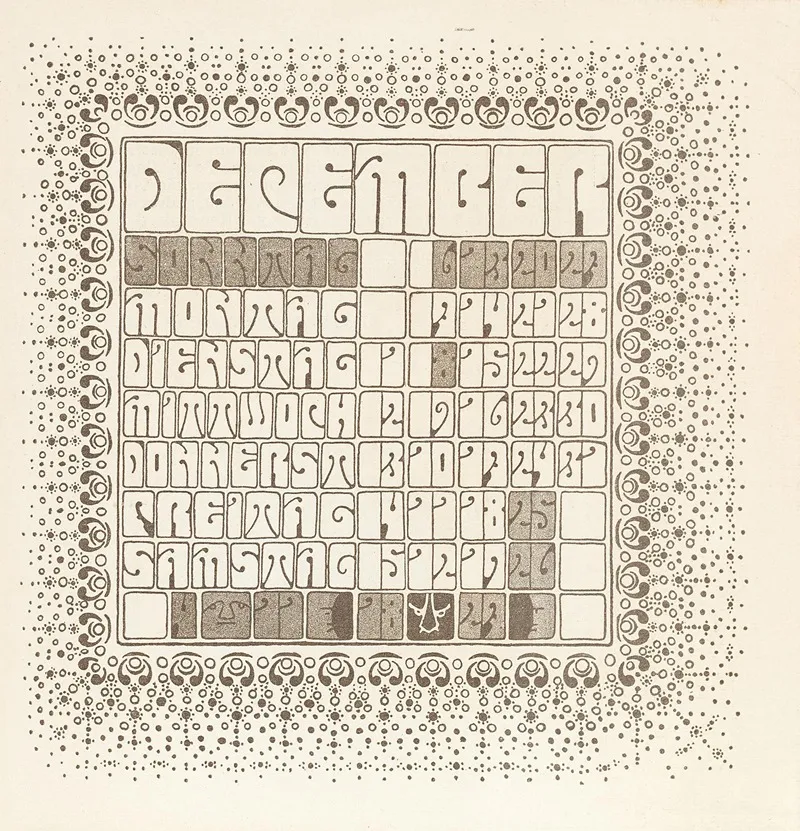 DECEMBER
SONNTAG 6 13 20 27
MONTAG 7 14 21 28
DIENSTAG 1 8 15 22 29
MITTWOCH 2 9 16 23 30
DONNERST 3 10 17 24 31
FREITAG 4 11 18 25
SAMSTAG 5 12 19 26
4 11 18 27